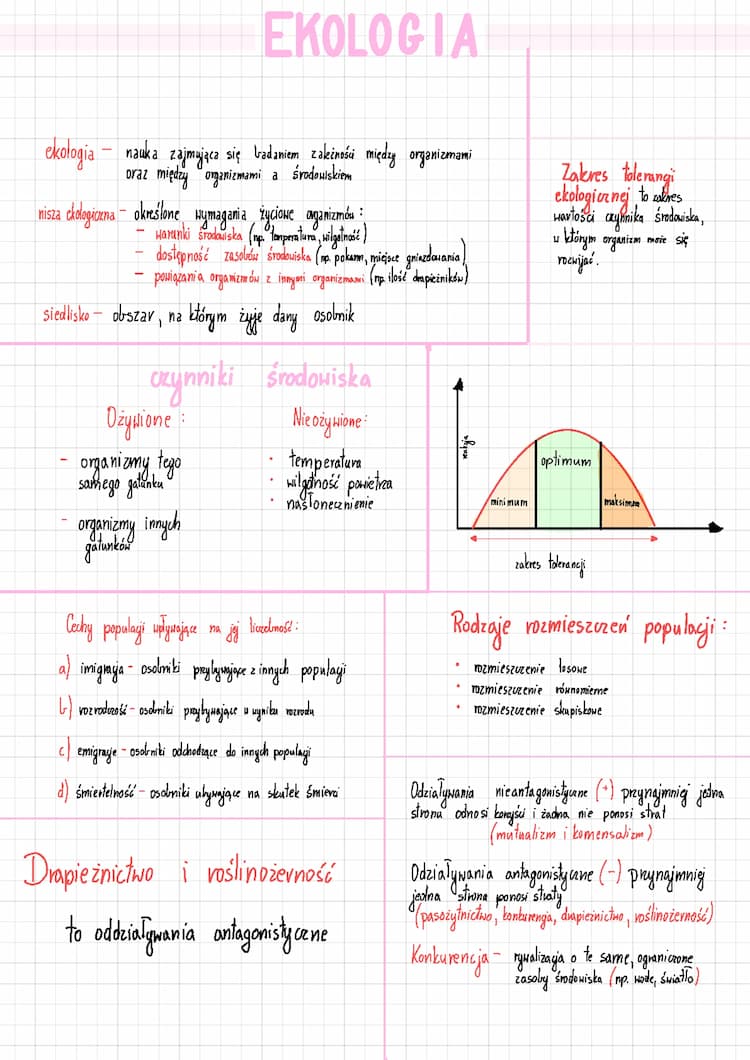 EKOLOGIA
ekologia - nauka zajmująca się badaniem zależności między organizmami
oraz między organizmami a środowiskiem
nisza ekologiczna - określone wymagania życiowe organizmów :
- warunki środowiska (np. temperatura, wilgotność)
- dostępność zasobów środowiska (np. pokarm, miejsce gniazdowania)
- powiązania organizmów z innymi organizmami (np. ilość drapieżników)
siedlisko - obszar, na którym żyje dany osobnik
Zakres tolerancji
ekologicznej to zakres
wartości czynnika środowiska,
w którym organizm może się
rozwijać.
czynniki środowiska
Ożywione :
- organizmy tego
samego gatunku
- organizmy innych
gatunków
Nieożywione:
• temperatura
• wilgotność powietrza
• nasłonecznienie
reakcja
minimum
optimum
maksimum
zakres tolerancji
Cechy populacji wpływające na jej liczebność:
a) imigracja - osobniki przybywające z innych populacji
b) rozrodczość - osobniki przybywające w wyniku rozrodu
c) emigracje - osobniki odchodzące do innych populacji
d) śmiertelność - osobniki ubywające na skutek śmierci
Rodzaje rozmieszczeń populacji :
• rozmieszczenie losowe
• rozmieszczenie równomierne
• rozmieszczenie skupiskowe
Drapieżnictwo i roślinożerność
to oddziaływania antagonistyczne
Odziaływania nieantagonistyczne (+) przynajmniej jedna
strona odnosi korzyści i żadna nie ponosi strat
(mutualizm i komensalizm)
Odziaływania antagonistyczne (-) przynajmniej
jedna strona ponosi straty
(pasożytnictwo, konkurencja, drapieżnictwo, roślinożerność)
Konkurencja - rywalizacja o te same, ograniczone
zasoby środowiska (np. wodę, światło)